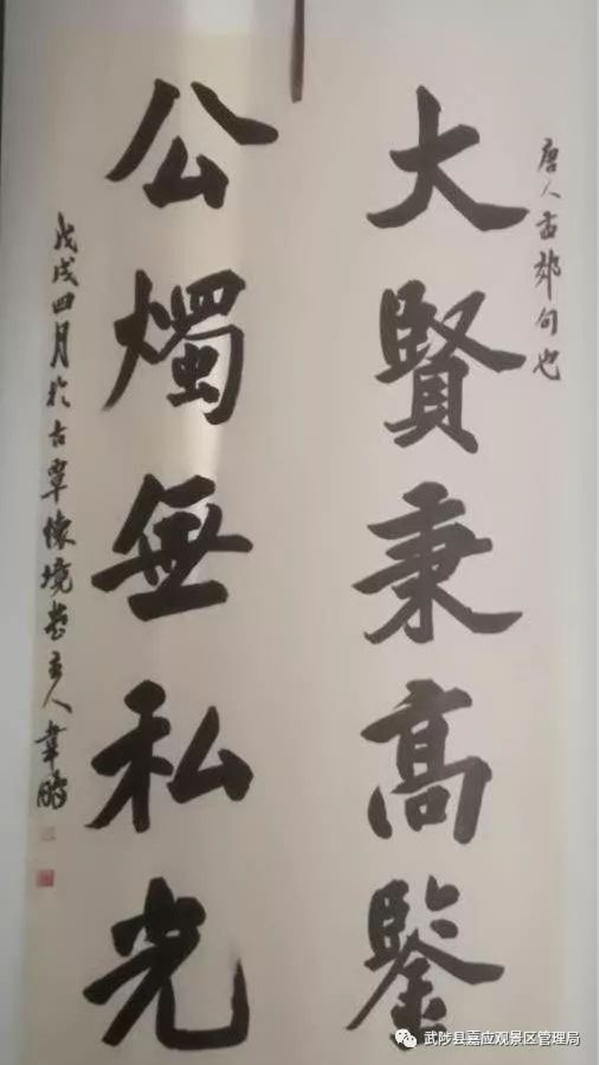 唐人孟郊句也
大賢秉高鑒
公燭無私光
戊戌四月於古覃懷境主人韋鵬
武陟县嘉应观景区管理局